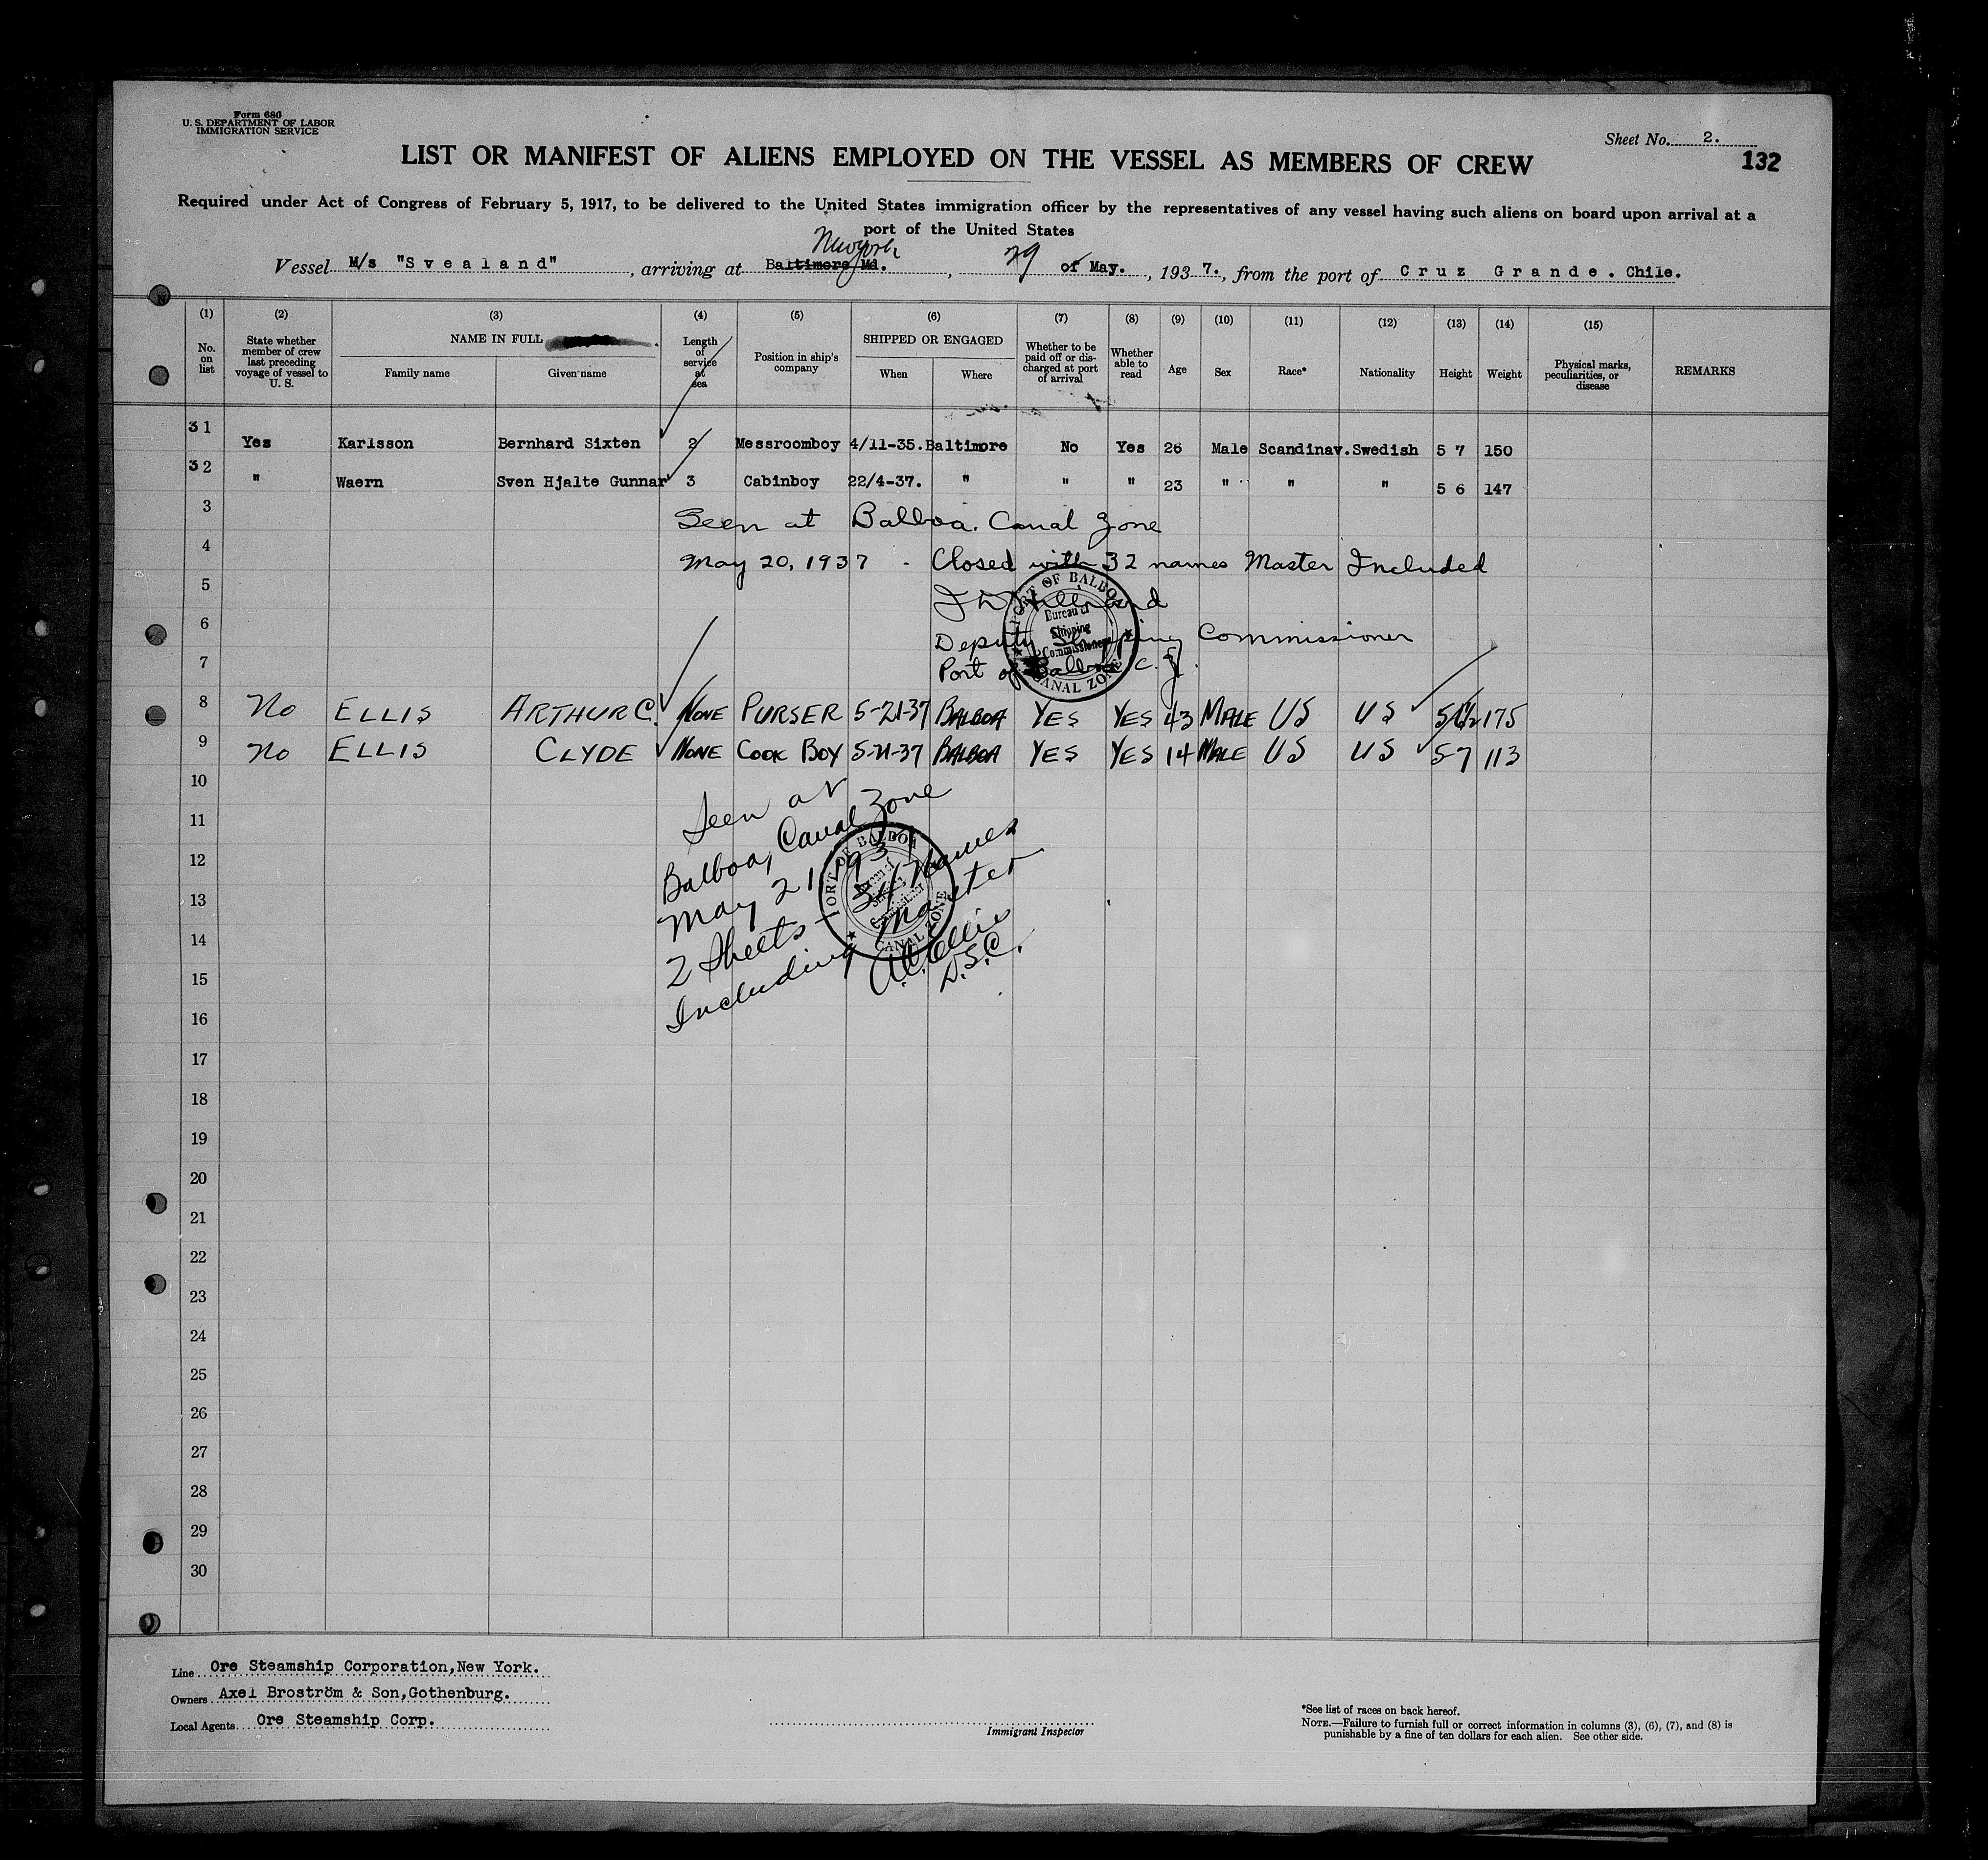 Form 680
U. S. DEPARTMENT OF LABOR
IMMIGRATION SERVICE
Sheet No. 2.
132
LIST OR MANIFEST OF ALIENS EMPLOYED ON THE VESSEL AS MEMBERS OF CREW
Required under Act of Congress of February 5, 1917, to be delivered to the United States immigration officer by the representatives of any vessel having such aliens on board upon arrival at a
port of the United States
New York
Vessel M/s "Svealand", arriving at Baltimore Md., 29 of May., 1937., from the port of Cruz Grande. Chile.
(1) (2) (3) (4) (5) (6) (7) (8) (9) (10) (11) (12) (13) (14) (15)
No. on list
State whether member of crew last preceding voyage of vessel to U. S.
NAME IN FULL
Family name
Given name
Length of service at sea
Position in ship's company
SHIPPED OR ENGAGED
When
Where
Whether to be paid off or discharged at port of arrival
Whether able to read
Age
Sex
Race*
Nationality
Height
Weight
Physical marks, peculiarities, or disease
REMARKS
31 Yes Karlsson Bernhard Sixten 2 Messroomboy 4/11-35. Baltimore No Yes 26 Male Scandinav. Swedish 5 7 150
32 " Waern Sven Hjalte Gunnar 3 Cabinboy 22/4-37. " " " 23 " " " 5 6 147
3 Seen at Balboa. Canal Zone
4 May 20, 1937 - Closed with 32 names Master Included
5
6 Deputy Shipping Commissioner
7 Port of Balboa C. Z.
PORT OF BALBOA
Bureau of
Shipping
Commissioner
CANAL ZONE
8 No ELLIS ARTHUR C. NONE PURSER 5-21-37 BALBOA YES YES 43 MALE US US 175
9 No ELLIS CLYDE NONE COOK BOY 5-21-37 BALBOA YES YES 14 MALE US US 5-7 113
10
11 Seen at
12 Balboa, Canal Zone
13 May 21 1937
14 2 Sheets - 34 Names
15 Including Master
16 A.C. Ellis
D.S.C.
PORT OF BALBOA
CANAL ZONE
17
18
19
20
21
22
23
24
25
26
27
28
29
30
Line Ore Steamship Corporation, New York.
Owners Axel Broström & Son, Gothenburg.
Local Agents Ore Steamship Corp.
Immigrant Inspector
*See list of races on back hereof.
NOTE.—Failure to furnish full or correct information in columns (3), (6), (7), and (8) is
punishable by a fine of ten dollars for each alien. See other side.